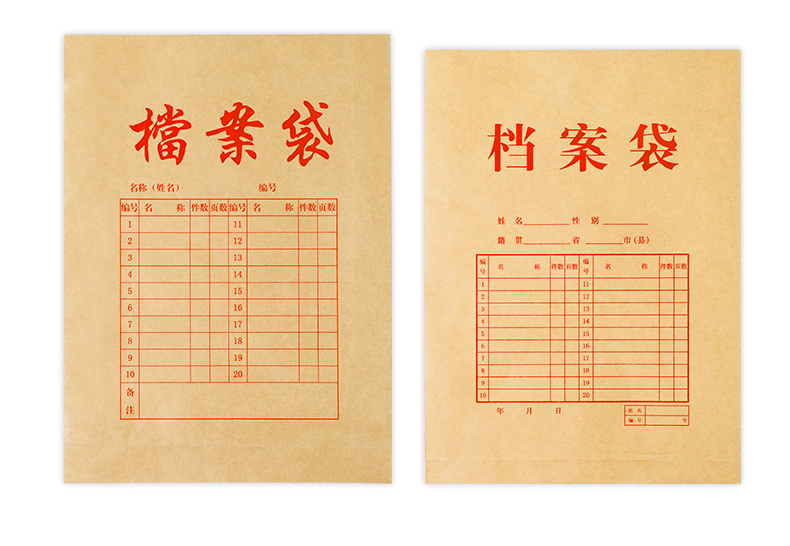 檔案袋
名称（姓名） 编号
编号 名 称 件数 页数 编号 名 称 件数 页数
1 11
2 12
3 13
4 14
5 15
6 16
7 17
8 18
9 19
10 20
备注
档案袋
姓 名 性 别
籍 贯 省 市(县)
编号 名 称 件数 页数 编号 名 称 件数 页数
1 11
2 12
3 13
4 14
5 15
6 16
7 17
8 18
9 19
10 20
年 月 日
姓 名
编 号 号